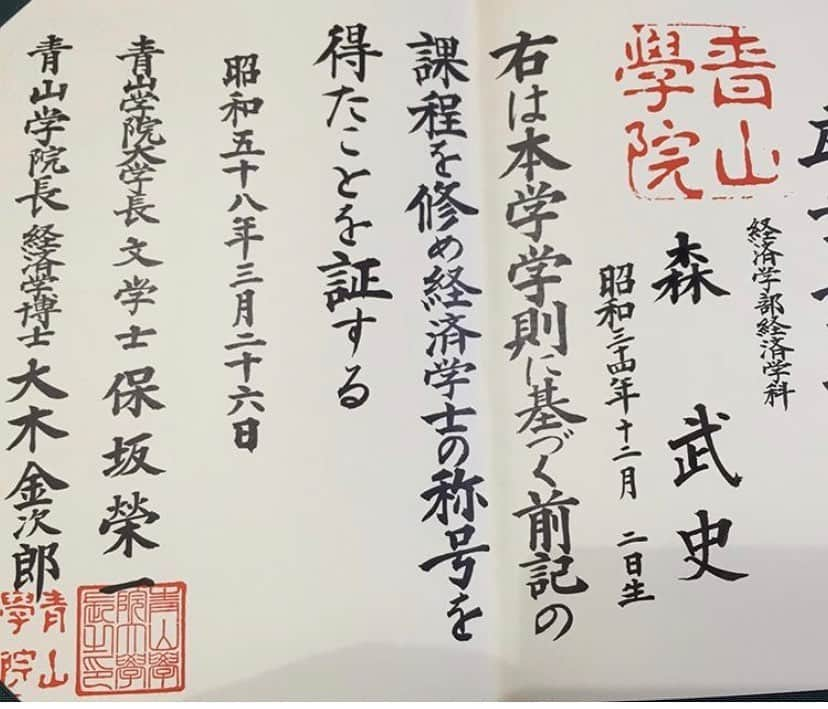 青山學院
経済学部経済学科
森 武史
昭和三十四年十二月 二日生
右は本学学則に基づく前記の
課程を修め経済学士の称号を
得たことを証する
昭和五十八年三月二十六日
青山学院大学長 文学士 保坂榮一
青山學院大學長之印
青山学院長 経済学博士 大木金次郎
青山學院